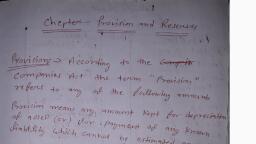 Chapter - Provision and Reserves
Provisions → According to the
Companies Act the term "Provision"
refers to any of the following amounts
Provision means any amount kept for depreciation
of asset (or) for payment of any known
liability which cannot be estimated